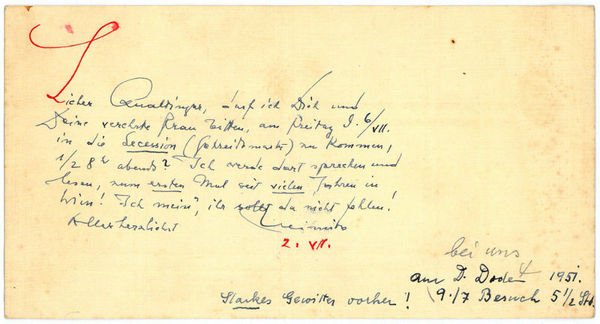 Lieber Qualtinger, darf ich Dich und
Deine verehrte Frau bitten, am Freitag d. 6/VII.
in die Secession (Getreidemarkt) zu kommen,
1/2 8h abends? Ich werde dort sprechen und
lesen, zum ersten Mal seit vielen Jahren in
Wien! Ich mein', ihr sollt da nicht fehlen.
Allerherzlichst
2. VII.
bei uns
am D. 1951.
(9./7 Besuch 5 1/2 Std.
Starkes Gewitter vorher!